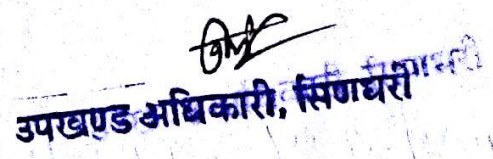 उपखण्ड अधिकारी, सिणधरी